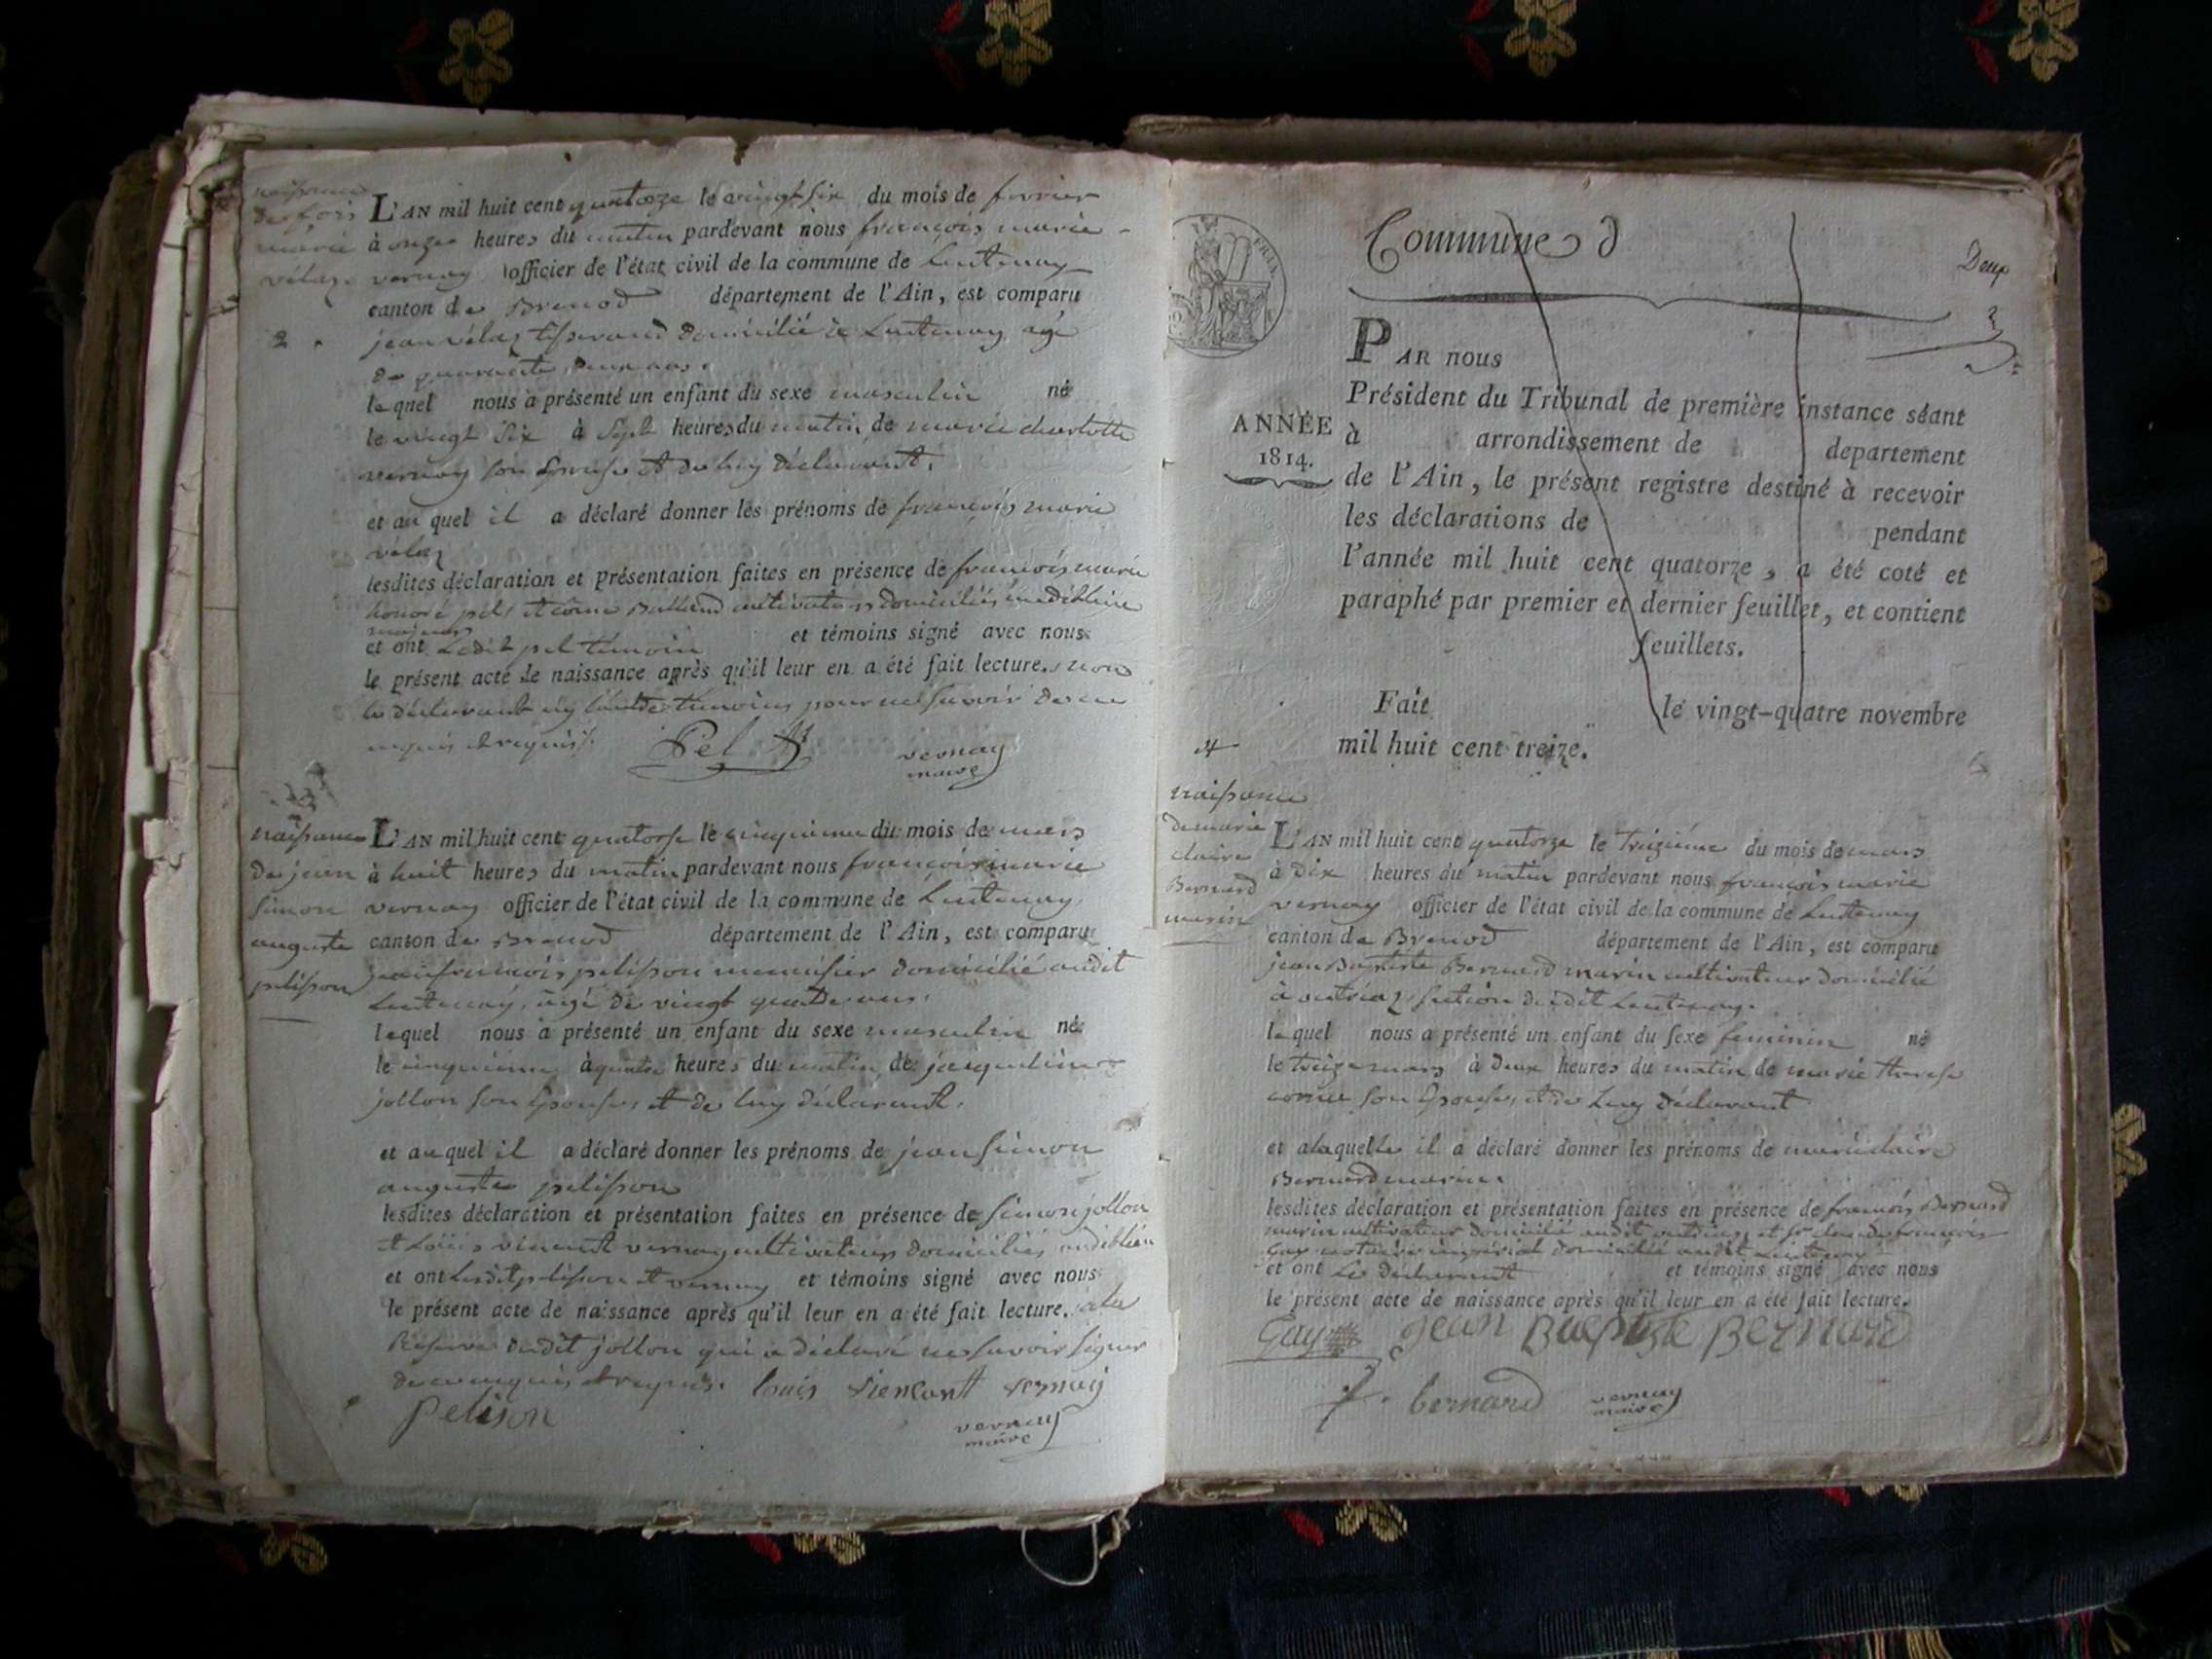 naissance
de fois
marie
vélaz
2
L'AN mil huit cent quatorze le vingt six du mois de fevrier
à onze heures du matin pardevant nous françois marie
vernay officier de l'état civil de la commune de Lantenay
canton de Brenod département de l'Ain, est comparu
jean vélaz tisserand domicilié à Lantenay agé
de quarante deux ans.
lequel nous a présenté un enfant du sexe masculin né
le vingt six à sept heures du matin de marie charlotte
vernay son Epouse et de luy déclarant.
et au quel il a déclaré donner les prénoms de francois marie
vélaz
lesdites déclaration et présentation faites en présence de francois marie
honoré pel et Balland cultivateurs domiciliés
majeurs
et ont Ledit pel témoin et témoins signé avec nous
le présent acte de naissance après qu'il leur en a été fait lecture. non
le déclarant ny l'autre témoins pour ne savoir de ce
enquis et requis.
Pel
vernay
maire
3
naissance
de jean
simon
auguste
pelisson
L'AN mil huit cent quatorse le cinquieme du mois de mars
à huit heures du matin pardevant nous francois marie
vernay officier de l'état civil de la commune de Lantenay
canton de Brenod département de l'Ain, est comparu
jean francois pelisson menuisier domicilié audit
Lantenay, agé de vingt quatre ans.
lequel nous a présenté un enfant du sexe masculin né
le cinquieme à quatre heures du matin de jacqueline
jollon son Epouse, et de luy déclarant.
et au quel il a déclaré donner les prénoms de jean simon
auguste pelisson
lesdites déclaration et présentation faites en présence de simon jollon
et Loüis vincent vernay cultivateurs domiciliés audit lieu
et ont Lesdit pelisson et vernay et témoins signé avec nous
le présent acte de naissance après qu'il leur en a été fait lecture. a la
Réserve dudit jollon qui a déclaré ne savoir signer
de ce enquis et requis. louis viencent vernay
Pelison
vernay
maire
Commune d
Deux
2
PAR nous
Président du Tribunal de première instance séant
à arrondissement de departement
de l'Ain, le présent registre destiné à recevoir
les déclarations de pendant
l'année mil huit cent quatorze, a été coté et
paraphé par premier et dernier feuillet, et contient
feuillets.
Fait le vingt-quatre novembre
mil huit cent treize.
ANNÉE
1814.
4
naissance
de marie
claire
Bernard
marin
L'AN mil huit cent quatorze le Treizième du mois de mars
à dix heures du matin pardevant nous françois marie
vernay officier de l'état civil de la commune de Lantenay
canton de Brenod département de l'Ain, est comparu
jean Baptiste Bernard marin cultivateur domicilié
à outriaz section dudit Lantenay.
lequel nous a présenté un enfant du sexe feminin né
le treize mars à deux heures du matin de marie therese
son Epouse, et de Luy déclarant
et alaquelle il a déclaré donner les prénoms de marie claire
Bernard marin.
lesdites déclaration et présentation faites en présence de francois Bernard
marin cultivateur domicilié audit outriaz, et sr claude françois
Gay notaire impérial domicilié audit Lantenay
et ont Le déclarant et témoins signé avec nous
le présent acte de naissance après qu'il leur en a été fait lecture.
Gay Jean Baeptiste Bernard
f. bernard
vernay
maire